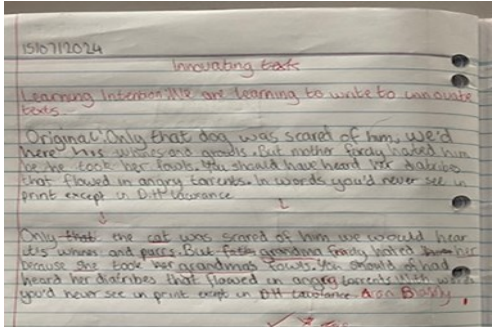 15/07/2024
Innovating text
Learning Intention: We are learning to write to innovate
texts.
Original: Only that dog was scared of him, we'd
here his whines and growls. But mother hated him
he took her fowls. You should have heard her diatribes
that flowed in angry torrents. In words you'd never see in
print except in D.H Lawrance
Only that the cat was scared of him we would hear
its whines and purrs. But grandma hated
because she took her grandmas fowls. You should of had
heard her diatribes that flowed in angry torrents with words
you'd never see in print except in DH